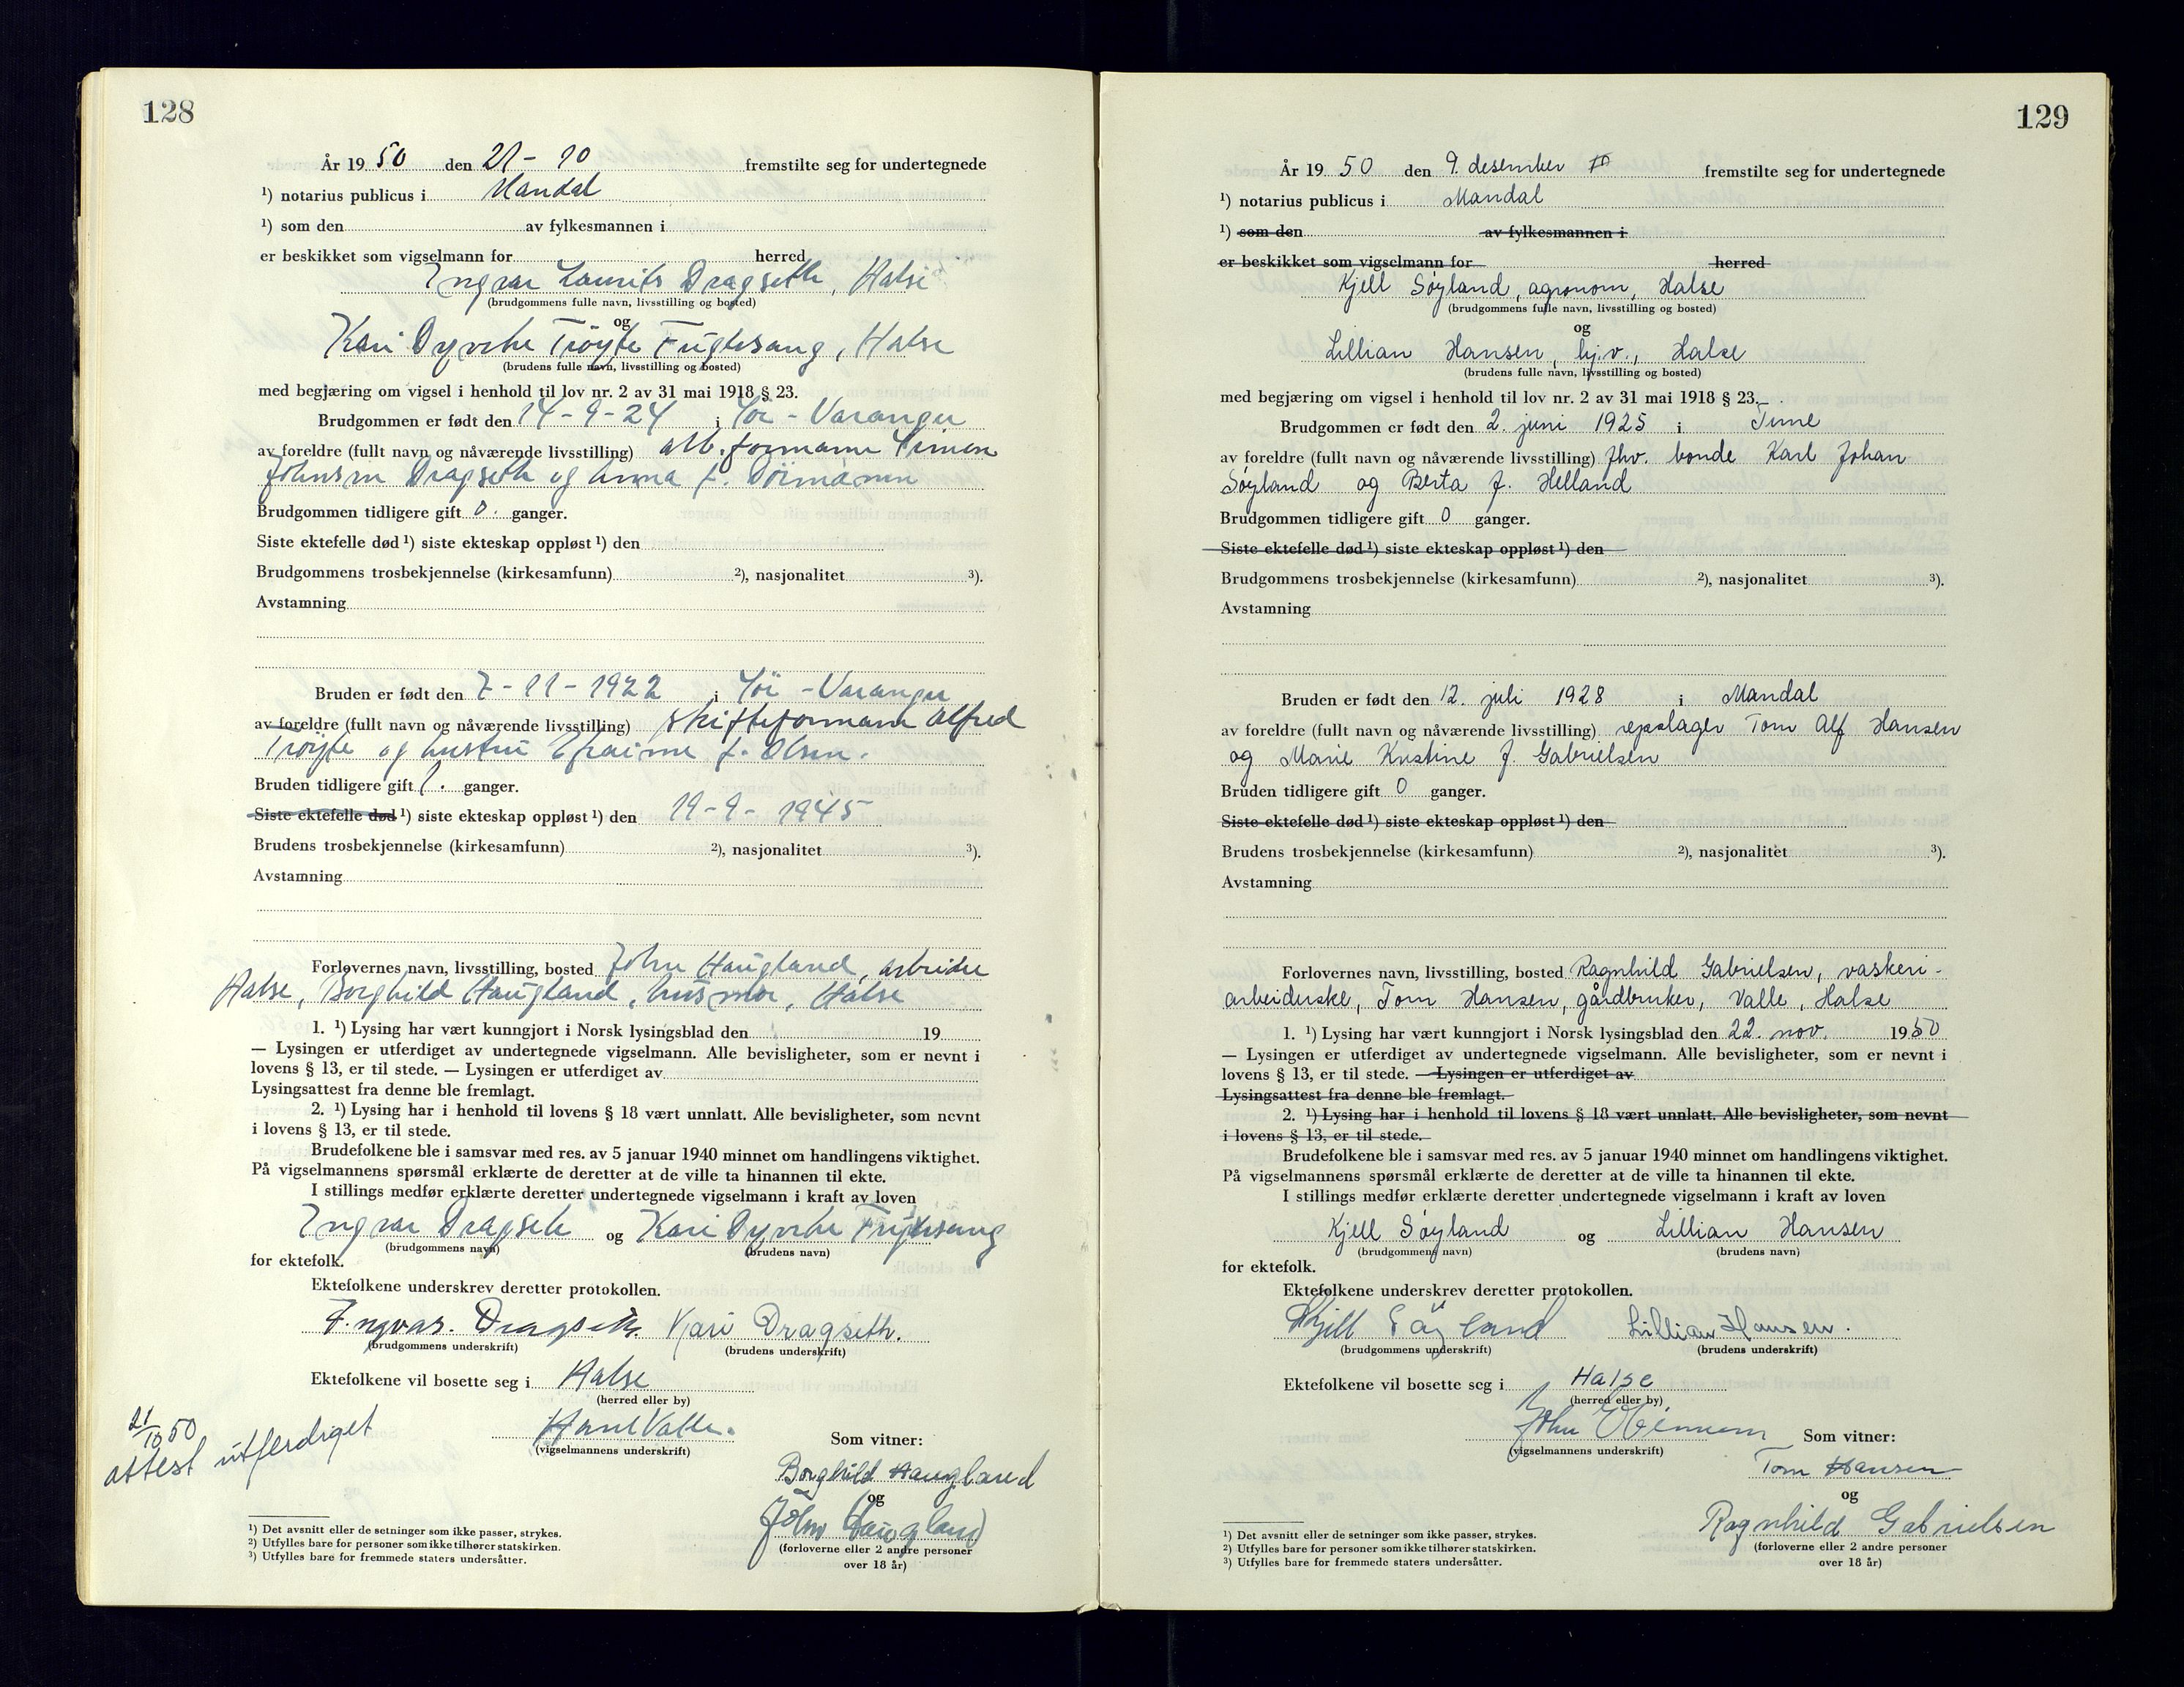 128
År 19 50 den 21 - 10 fremstilte seg for undertegnede
¹) notarius publicus i Mandal
¹) som den av fylkesmannen i
er beskikket som vigselmann for herred
Ingvar Laurits Dragseth, Halse
(brudgommens fulle navn, livsstilling og bosted)
og
Kari Dyveke Trøyte Fuglesang, Halse
(brudens fulle navn, livsstilling og bosted)
med begjæring om vigsel i henhold til lov nr. 2 av 31 mai 1918 § 23.
Brudgommen er født den 14 - 9 - 24 i Sør - Varanger
av foreldre (fullt navn og nåværende livsstilling) arb. formann Simon
Johnsen Dragseth og Anna f.
Brudgommen tidligere gift 0. ganger.
Siste ektefelle død ¹) siste ekteskap oppløst ¹) den
Brudgommens trosbekjennelse (kirkesamfunn) ²), nasjonalitet ³).
Avstamning
Bruden er født den 7 - 11 - 1922 i Sør - Varanger
av foreldre (fullt navn og nåværende livsstilling) skifteformann Alfred
Trøyte og hustru f. Olsen.
Bruden tidligere gift 1. ganger.
Siste ektefelle død ¹) siste ekteskap oppløst ¹) den 19 - 9 - 1945
Brudens trosbekjennelse (kirkesamfunn) ²), nasjonalitet ³).
Avstamning
Forlovernes navn, livsstilling, bosted John Haugland, arbeider
Halse, Borghild Haugland, husmor, Halse
1. ¹) Lysing har vært kunngjort i Norsk lysingsblad den 19
— Lysingen er utferdiget av undertegnede vigselmann. Alle bevisligheter, som er nevnt i
lovens § 13, er til stede. — Lysingen er utferdiget av
Lysingsattest fra denne ble fremlagt.
2. ¹) Lysing har i henhold til lovens § 18 vært unnlatt. Alle bevisligheter, som nevnt
i lovens § 13, er til stede.
Brudefolkene ble i samsvar med res. av 5 januar 1940 minnet om handlingens viktighet.
På vigselmannens spørsmål erklærte de deretter at de ville ta hinannen til ekte.
I stillings medfør erklærte deretter undertegnede vigselmann i kraft av loven
Ingvar Dragseth og Kari Dyveke Fuglesang
(brudgommens navn) (brudens navn)
for ektefolk.
Ektefolkene underskrev deretter protokollen.
Ingvar. Dragseth. Kari Dragseth.
(brudgommens underskrift) (brudens underskrift)
Ektefolkene vil bosette seg i Halse
(herred eller by)
21/10 50
attest utferdiget
Valle.
(vigselmannens underskrift)
Som vitner:
Borghild Haugland
og
John Haugland
(forloverne eller 2 andre personer
over 18 år)
¹) Det avsnitt eller de setninger som ikke passer, strykes.
²) Utfylles bare for personer som ikke tilhører statskirken.
³) Utfylles bare for fremmede staters undersåtter.
129
År 19 50 den 9. desember fremstilte seg for undertegnede
¹) notarius publicus i Mandal
¹) som den av fylkesmannen i
er beskikket som vigselmann for herred
Kjell Søyland, agronom, Halse
(brudgommens fulle navn, livsstilling og bosted)
og
Lillian Hansen, hj.v., Halse
(brudens fulle navn, livsstilling og bosted)
med begjæring om vigsel i henhold til lov nr. 2 av 31 mai 1918 § 23.
Brudgommen er født den 2. juni 1925 i Time
av foreldre (fullt navn og nåværende livsstilling) fhv. bonde Karl Johan
Søyland og Berta f. Helland
Brudgommen tidligere gift 0 ganger.
Siste ektefelle død ¹) siste ekteskap oppløst ¹) den
Brudgommens trosbekjennelse (kirkesamfunn) ²), nasjonalitet ³).
Avstamning
Bruden er født den 12. juli 1928 i Mandal
av foreldre (fullt navn og nåværende livsstilling) repslager Tom Alf Hansen
og Marie Kristine f. Gabrielsen
Bruden tidligere gift 0 ganger.
Siste ektefelle død ¹) siste ekteskap oppløst ¹) den
Brudens trosbekjennelse (kirkesamfunn) ²), nasjonalitet ³).
Avstamning
Forlovernes navn, livsstilling, bosted Ragnhild Gabrielsen, vaskeri-
arbeiderske, Tom Hansen, gårdbruker, Valle, Halse
1. ¹) Lysing har vært kunngjort i Norsk lysingsblad den 22. nov. 1950
— Lysingen er utferdiget av undertegnede vigselmann. Alle bevisligheter, som er nevnt i
lovens § 13, er til stede. — Lysingen er utferdiget av
Lysingsattest fra denne ble fremlagt.
2. ¹) Lysing har i henhold til lovens § 18 vært unnlatt. Alle bevisligheter, som nevnt
i lovens § 13, er til stede.
Brudefolkene ble i samsvar med res. av 5 januar 1940 minnet om handlingens viktighet.
På vigselmannens spørsmål erklærte de deretter at de ville ta hinannen til ekte.
I stillings medfør erklærte deretter undertegnede vigselmann i kraft av loven
Kjell Søyland og Lillian Hansen
(brudgommens navn) (brudens navn)
for ektefolk.
Ektefolkene underskrev deretter protokollen.
Kjell Söyland Lillian Hansen.
(brudgommens underskrift) (brudens underskrift)
Ektefolkene vil bosette seg i Halse
(herred eller by)
John
(vigselmannens underskrift)
Som vitner:
Tom Hansen
og
Ragnhild Gabrielsen
(forloverne eller 2 andre personer
over 18 år)
¹) Det avsnitt eller de setninger som ikke passer, strykes.
²) Utfylles bare for personer som ikke tilhører statskirken.
³) Utfylles bare for fremmede staters undersåtter.